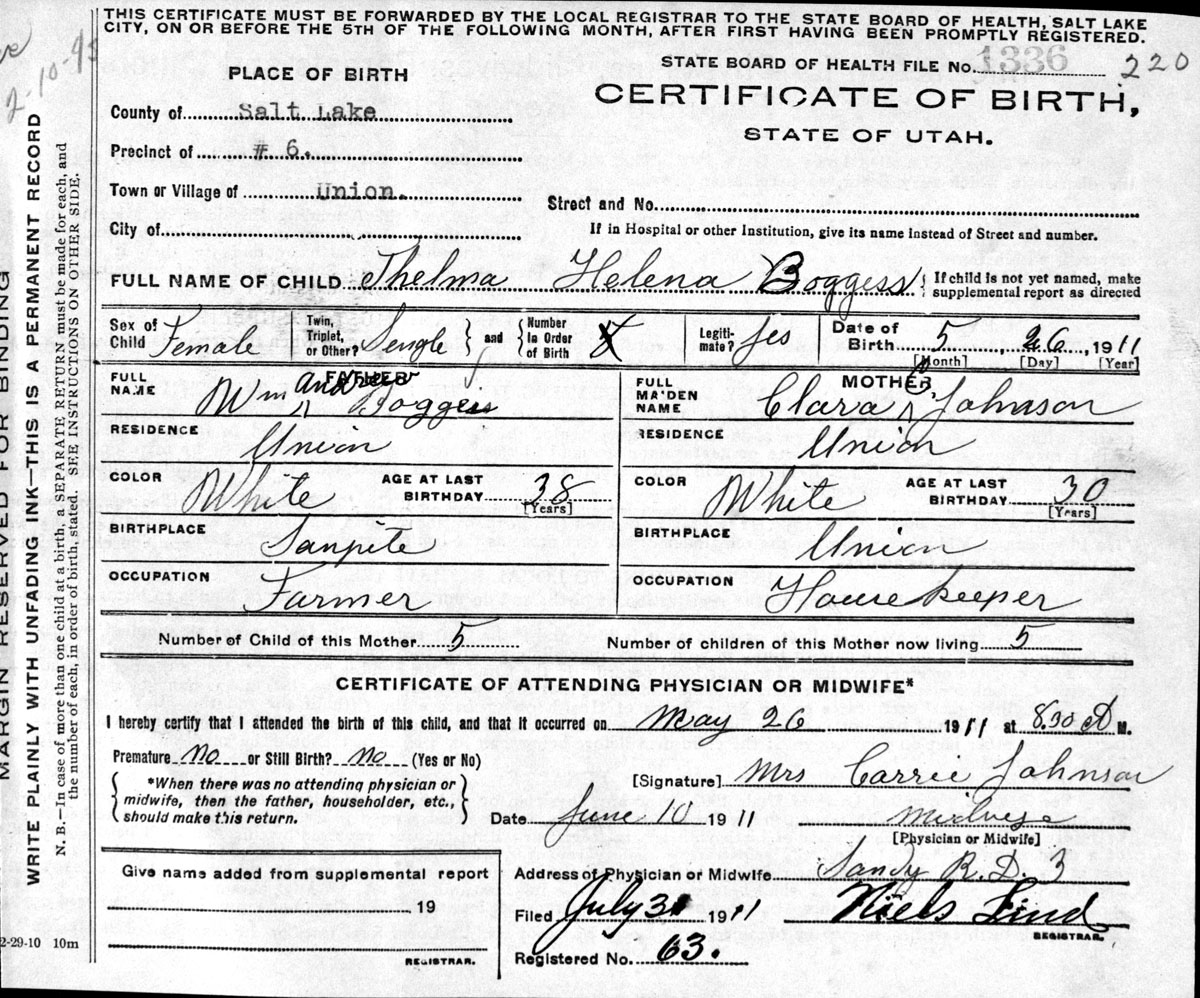 THIS CERTIFICATE MUST BE FORWARDED BY THE LOCAL REGISTRAR TO THE STATE BOARD OF HEALTH, SALT LAKE
CITY, ON OR BEFORE THE 5TH OF THE FOLLOWING MONTH, AFTER FIRST HAVING BEEN PROMPTLY REGISTERED.
PLACE OF BIRTH
STATE BOARD OF HEALTH FILE No. 1336 220
County of Salt Lake
CERTIFICATE OF BIRTH,
STATE OF UTAH.
Precinct of # 6.
Town or Village of Union.
Street and No.
City of
If in Hospital or other Institution, give its name instead of Street and number.
FULL NAME OF CHILD Thelma Helena Boggess { If child is not yet named, make
supplemental report as directed
Sex of Child Female Twin, Triplet, or Other? Sengle } and { Number In Order of Birth Legiti-mate? Yes Date of Birth 5, 26, 1911
[Month] [Day] [Year]
FATHER
FULL NAME Wm Andrew Boggess
MOTHER
FULL MAIDEN NAME Clara Johnson
RESIDENCE Union
RESIDENCE Union
COLOR White AGE AT LAST BIRTHDAY 38 [Years]
COLOR White AGE AT LAST BIRTHDAY 30 [Years]
BIRTHPLACE Sanpete
BIRTHPLACE Union
OCCUPATION Farmer
OCCUPATION House Keeper
Number of Child of this Mother 5 Number of children of this Mother now living 5
CERTIFICATE OF ATTENDING PHYSICIAN OR MIDWIFE*
I hereby certify that I attended the birth of this child, and that it occurred on May 26 1911 at 8.30 A M.
Premature no or Still Birth? no (Yes or No)
*When there was no attending physician or
midwife, then the father, householder, etc.,
should make this return.
[Signature] Mrs Carrie Johnson
Date June 10 1911 Midwife
[Physician or Midwife]
Give name added from supplemental report
19
REGISTRAR.
Address of Physician or Midwife Sandy R.D. 3
Filed July 3 1911 Niels Lind
REGISTRAR.
Registered No. 63.
MARGIN RESERVED FOR BINDING
WRITE PLAINLY WITH UNFADING INK—THIS IS A PERMANENT RECORD
N. B.—In case of more than one child at a birth, a SEPARATE RETURN must be made for each, and
the number of each, in order of birth, stated. SEE INSTRUCTIONS ON OTHER SIDE.
2-29-10 10m